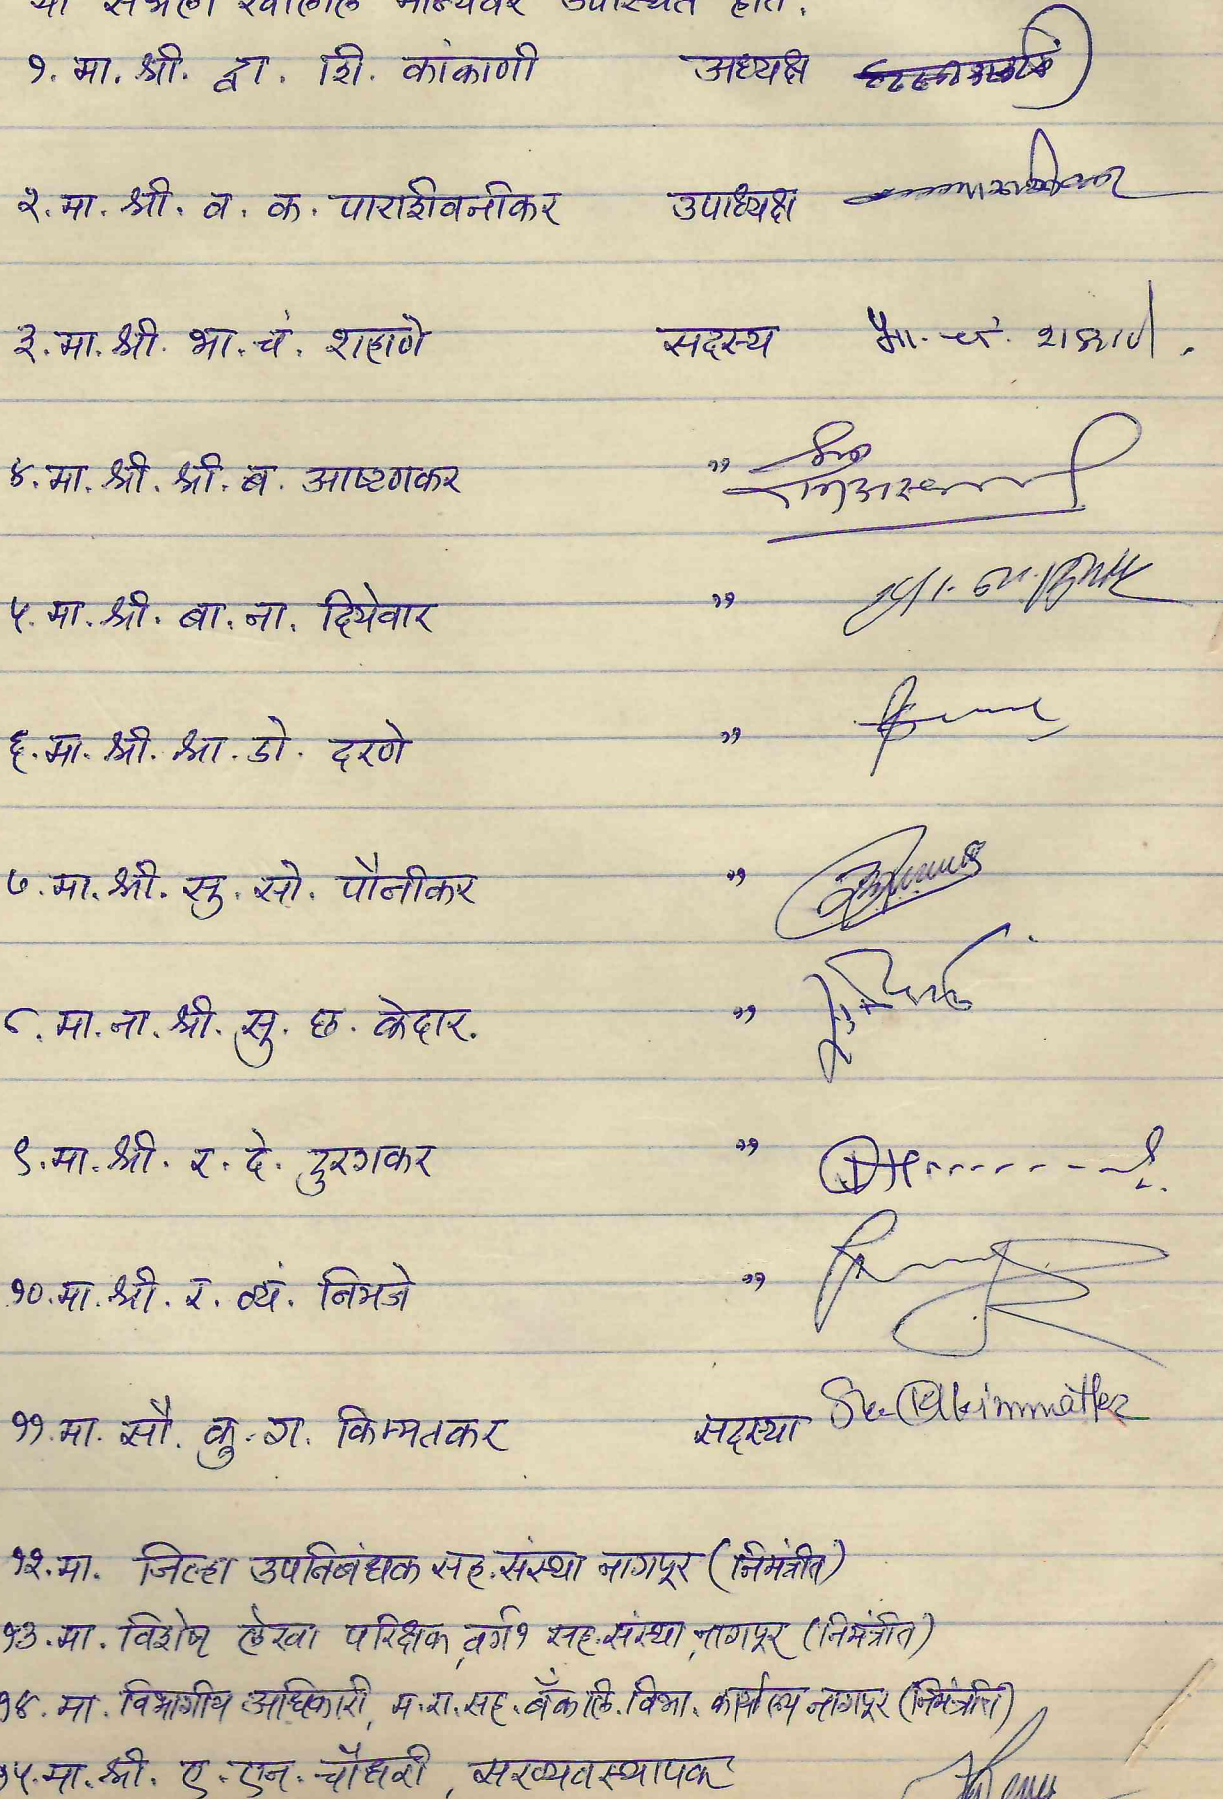 या सभेला खालील मान्यवर उपस्थित होते.
१. मा. श्री. द्वा. शि. कांकाणी अध्यक्ष
२. मा. श्री. व. क. पाराशिवनीकर उपाध्यक्ष
३. मा. श्री. भा. चं. शहाणे सदस्य भा. चं. शहाणे.
४. मा. श्री. श्री. ब. आष्टणकर "
५. मा. श्री. बा. ना. दियेवार "
६. मा. श्री. श्रा. डो. दरणे "
७. मा. श्री. सु. सो. पौनीकर "
८. मा. ना. श्री. सु. छ. केदार. "
९. मा. श्री. र. दे. दुरगकर "
१०. मा. श्री. र. व्यं. निमजे "
११. मा. सौ. कु. ग. किम्मतकर सदस्या
१२. मा. जिल्हा उपनिबंधक सह. संस्था नागपूर (निमंत्रीत)
१३. मा. विशेष लेखा परिक्षक, वर्ग १ सह. संस्था, नागपूर (निमंत्रीत)
१४. मा. विभागीय अधिकारी, म. रा. सह. बँक लि. विभा. कार्यालय नागपूर (निमंत्रीत)
१५. मा. श्री. ए. एन. चौधरी, सरव्यवस्थापक